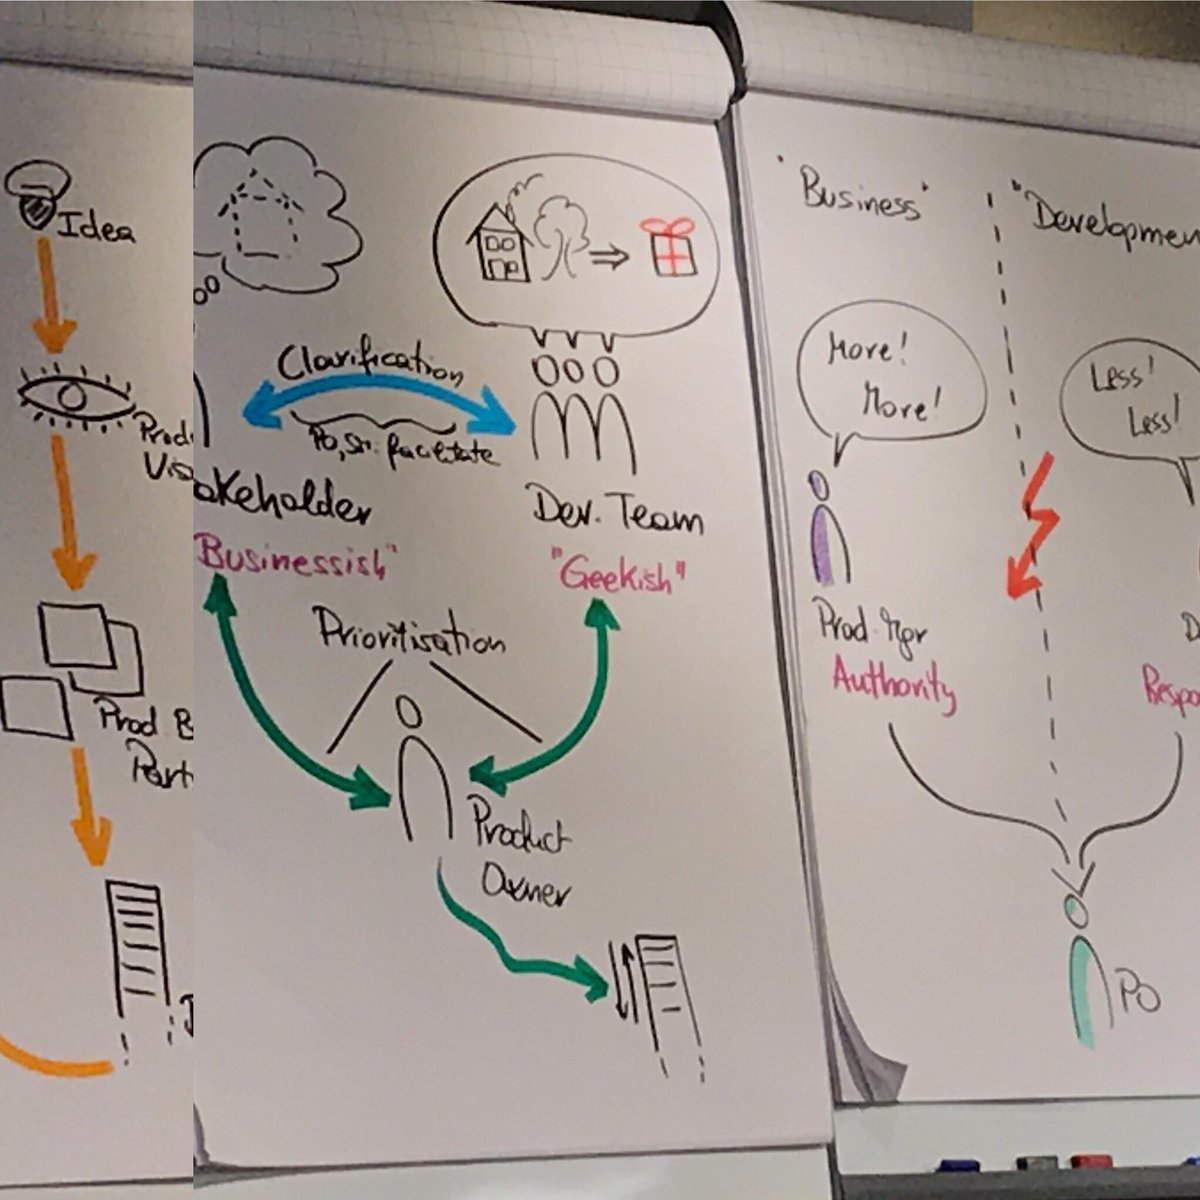 Idea
Prod.
Vis
Prod B
Part
Clarification
PO, Sm: facilitate
akeholder
Businessish"
Dev. Team
"Geekish"
Prioritisation
Product
Owner
"Business"
"Developmen
More!
More!
Less!
Less!
Prod. Mgr
Authority
D
Respo
PO